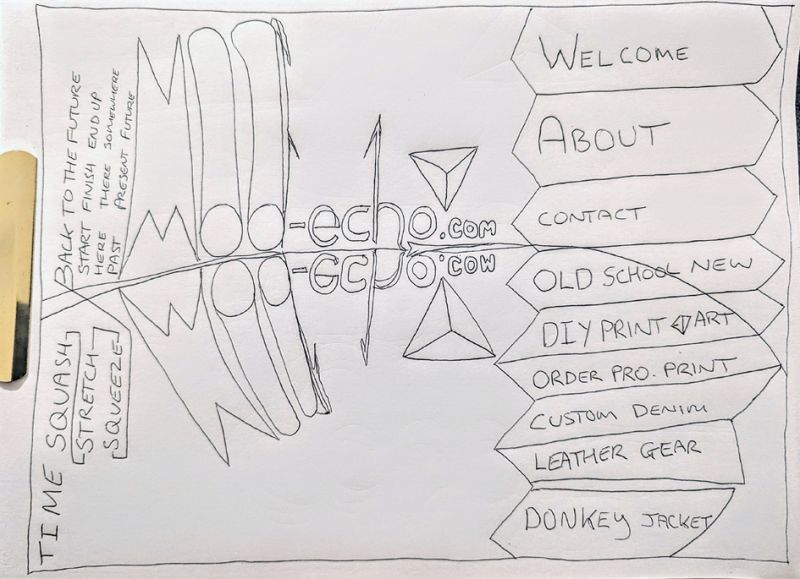 BACK TO THE FUTURE
START FINISH END UP
HERE THERE SOMEWHERE
PAST PRESENT FUTURE
TIME SQUASH
STRETCH
SQUEEZE
Moo-echo.com
WELCOME
ABOUT
CONTACT
OLD SCHOOL NEW
DIY PRINT ART
ORDER PRO. PRINT
CUSTOM DENIM
LEATHER GEAR
DONKEY JACKET